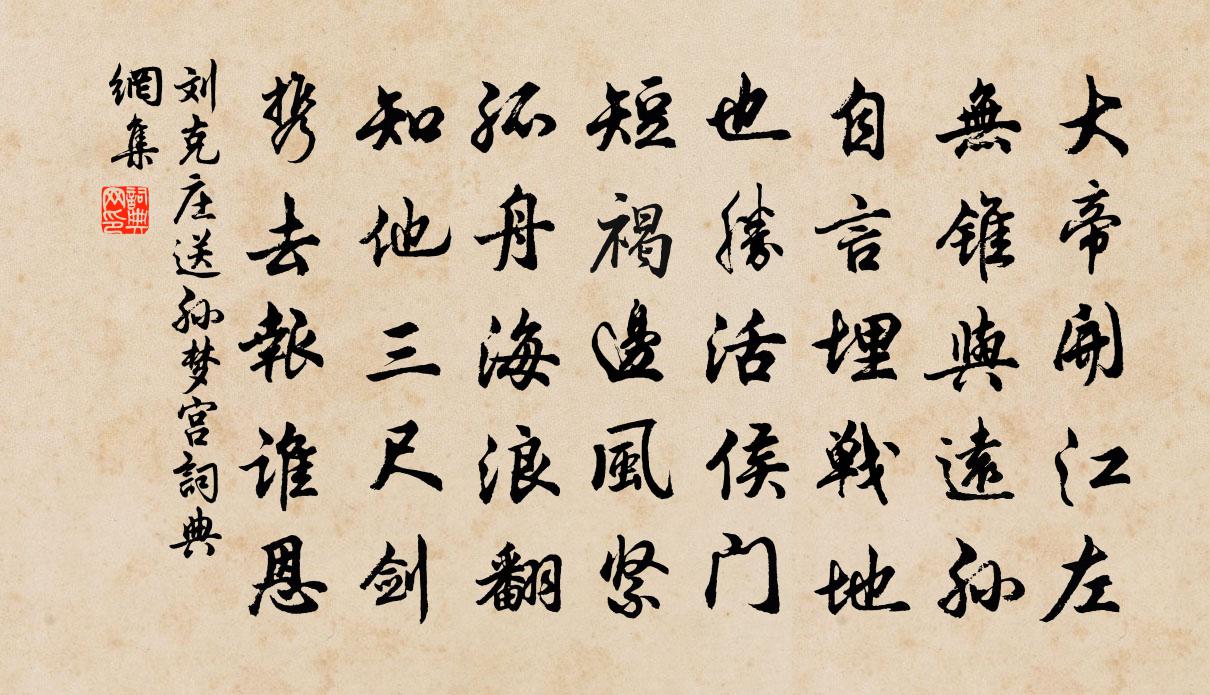 大帝開江左
無錐與遠孫
自言埋戰地
也勝活侯门
短褐邊風緊
孤舟海浪翻
知他三尺剑
携去報誰恩
刘克庄送孙梦宫詞典
網集
詞典
网印